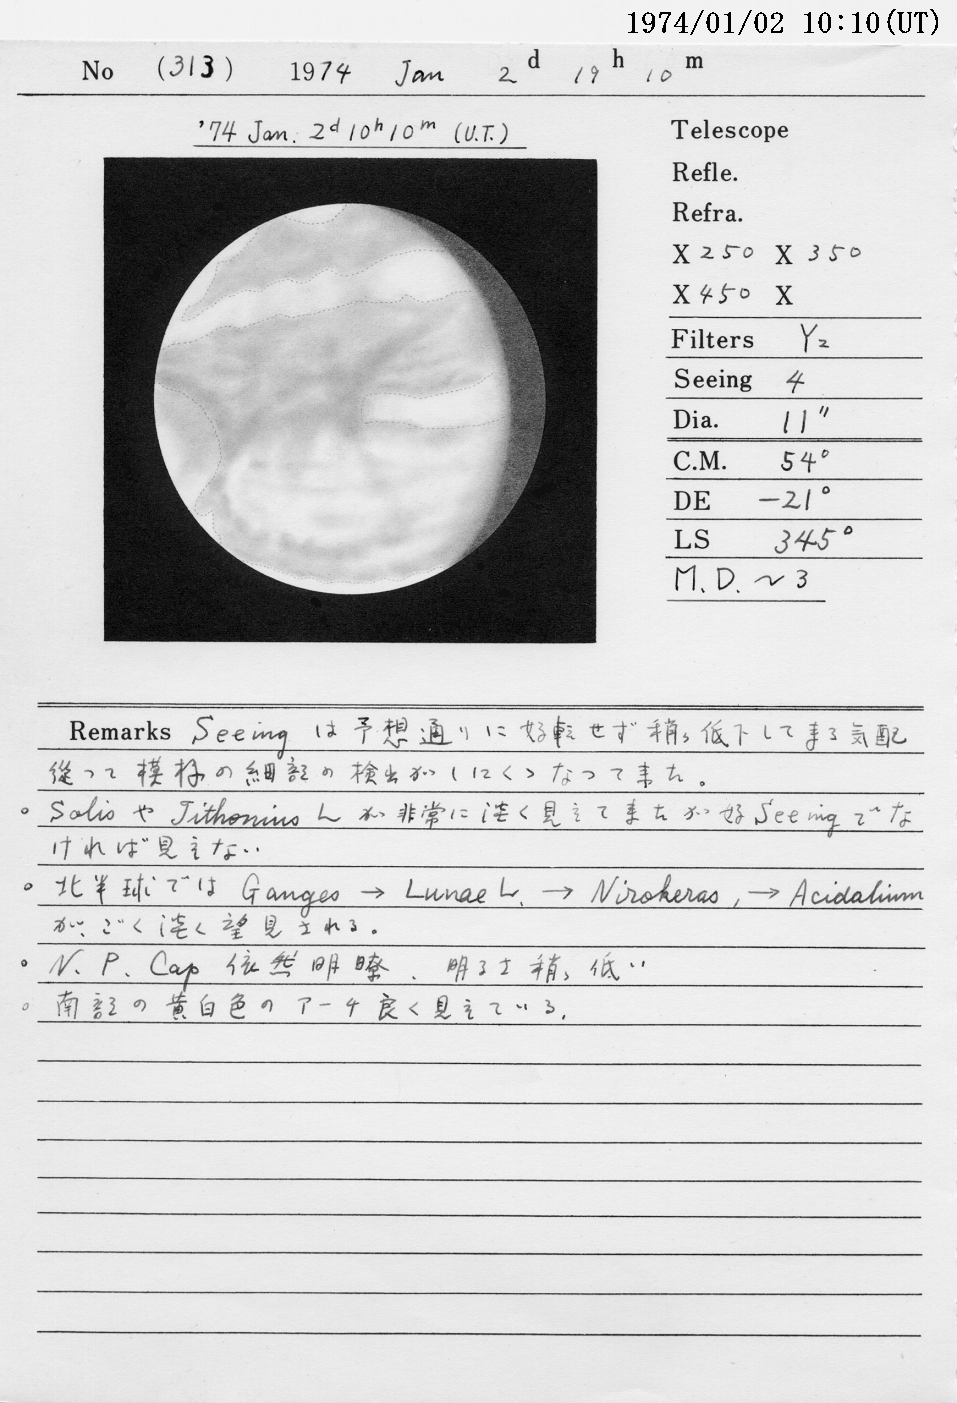 1974/01/02 10:10(UT)
No (313) 1974 Jan 2 d 19 h 10 m
'74 Jan. 2d 10h 10m (U.T.)
Telescope
Refle.
Refra.
X 250 X 350
X 450 X
Filters Y2
Seeing 4
Dia. 11"
C.M. 54°
DE -21°
LS 345°
M.D. ~3
Remarks Seeing は予想通りに好転せず稍々低下して来る気配
従って模様の細部の検出がしにくくなって来た。
○ Solis や Tithonius L が非常に淡く見えて来たが好Seeingでな
ければ見えない
○ 北半球では Ganges → Lunae L. → Nirokeras, → Acidalium
が、ごく淡く望見される。
○ N. P. Cap 依然明瞭、明るさ稍々低い
○ 南部の黄白色のアーチ良く見えている.